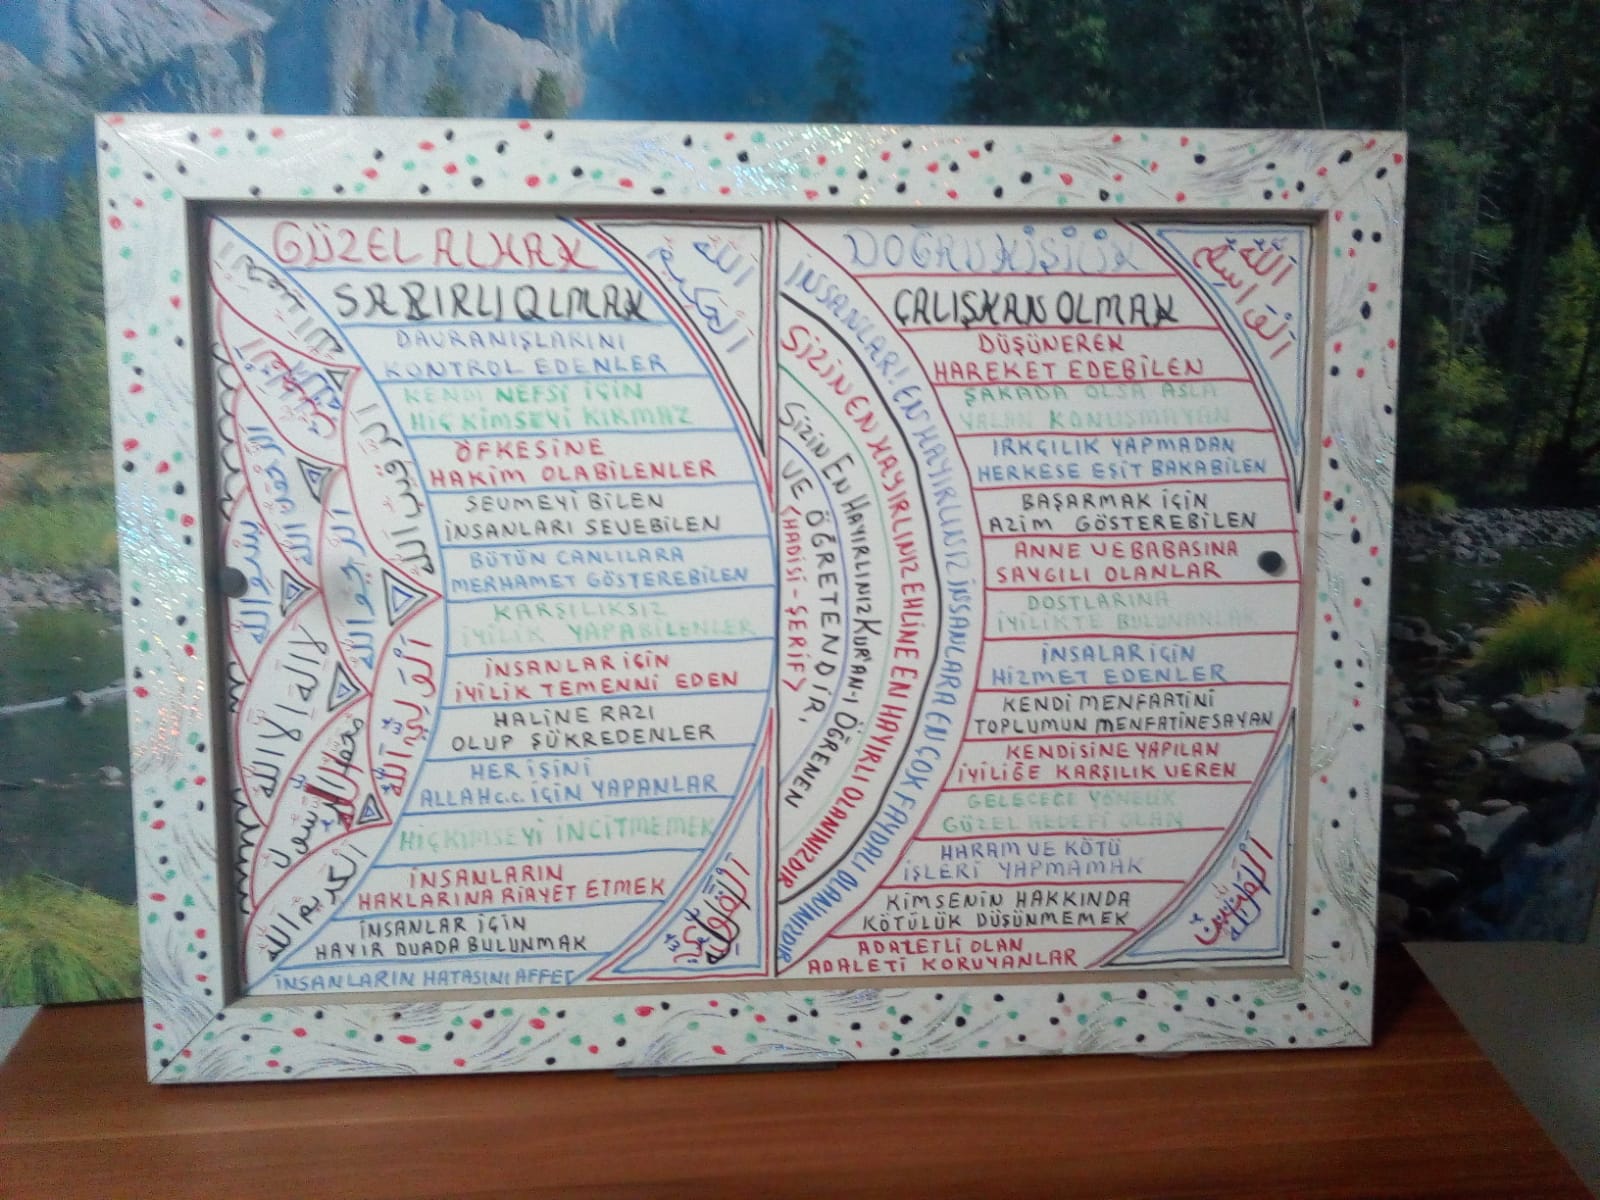 GÜZEL AHLAK
SABIRLI OLMAK
DAVRANIŞLARINI
KONTROL EDENLER
KENDI NEFSİ İÇİN
HİÇ KİMSEYİ KIRMAZ
ÖFKESİNE
HAKİM OLABİLENLER
SEVMEYİ BİLEN
İNSANLARI SEVEBİLEN
BÜTÜN CANLILARA
MERHAMET GÖSTEREBİLEN
KARŞILIKSIZ
İYİLİK YAPABİLENLER
İNSANLAR İÇİN
İYİLİK TEMENNİ EDEN
HALİNE RAZI
OLUP ŞÜKREDENLER
HER İŞİNİ
ALLAH c.c. İÇİN YAPANLAR
HİÇ KİMSEYİ İNCİTMEMEK
İNSANLARIN
HAKLARINA RİAYET ETMEK
İNSANLAR İÇİN
HAYIR DUADA BULUNMAK
İNSANLARIN HATASINI AFFET
لا اله الا الله
İNSANLAR! EN HAYIRLINIZ İNSANLARA EN ÇOK FAYDALI OLANINIZDIR
SİZİN EN HAYIRLINIZ EHLİNE EN HAYIRLI OLANINIZDIR
SİZİN EN HAYIRLINIZ KUR'AN-I ÖĞRENEN
VE ÖĞRETENDİR,
<HADİSİ-ŞERİF>
DOĞRU KİŞİLİK
ÇALIŞKAN OLMAK
DÜŞÜNEREK
HAREKET EDEBİLEN
ŞAKADA OLSA ASLA
YALAN KONUŞMAYAN
IRKÇILIK YAPMADAN
HERKESE EŞİT BAKABİLEN
BAŞARMAK İÇİN
AZİM GÖSTEREBİLEN
ANNE VE BABASINA
SAYGILI OLANLAR
DOSTLARINA
İYİLİKTE BULUNANLAR
İNSALAR İÇİN
HİZMET EDENLER
KENDİ MENFAATİNİ
TOPLUMUN MENFATİNE SAYAN
KENDİSİNE YAPILAN
İYİLİĞE KARŞILIK VEREN
GELECEĞE YÖNELİK
GÜZEL HEDEFİ OLAN
HARAM VE KÖTÜ
İŞLERİ YAPMAMAK
KİMSENİN HAKKINDA
KÖTÜLÜK DÜŞÜNMEMEK
ADALETLİ OLAN
ADALETİ KORUYANLAR